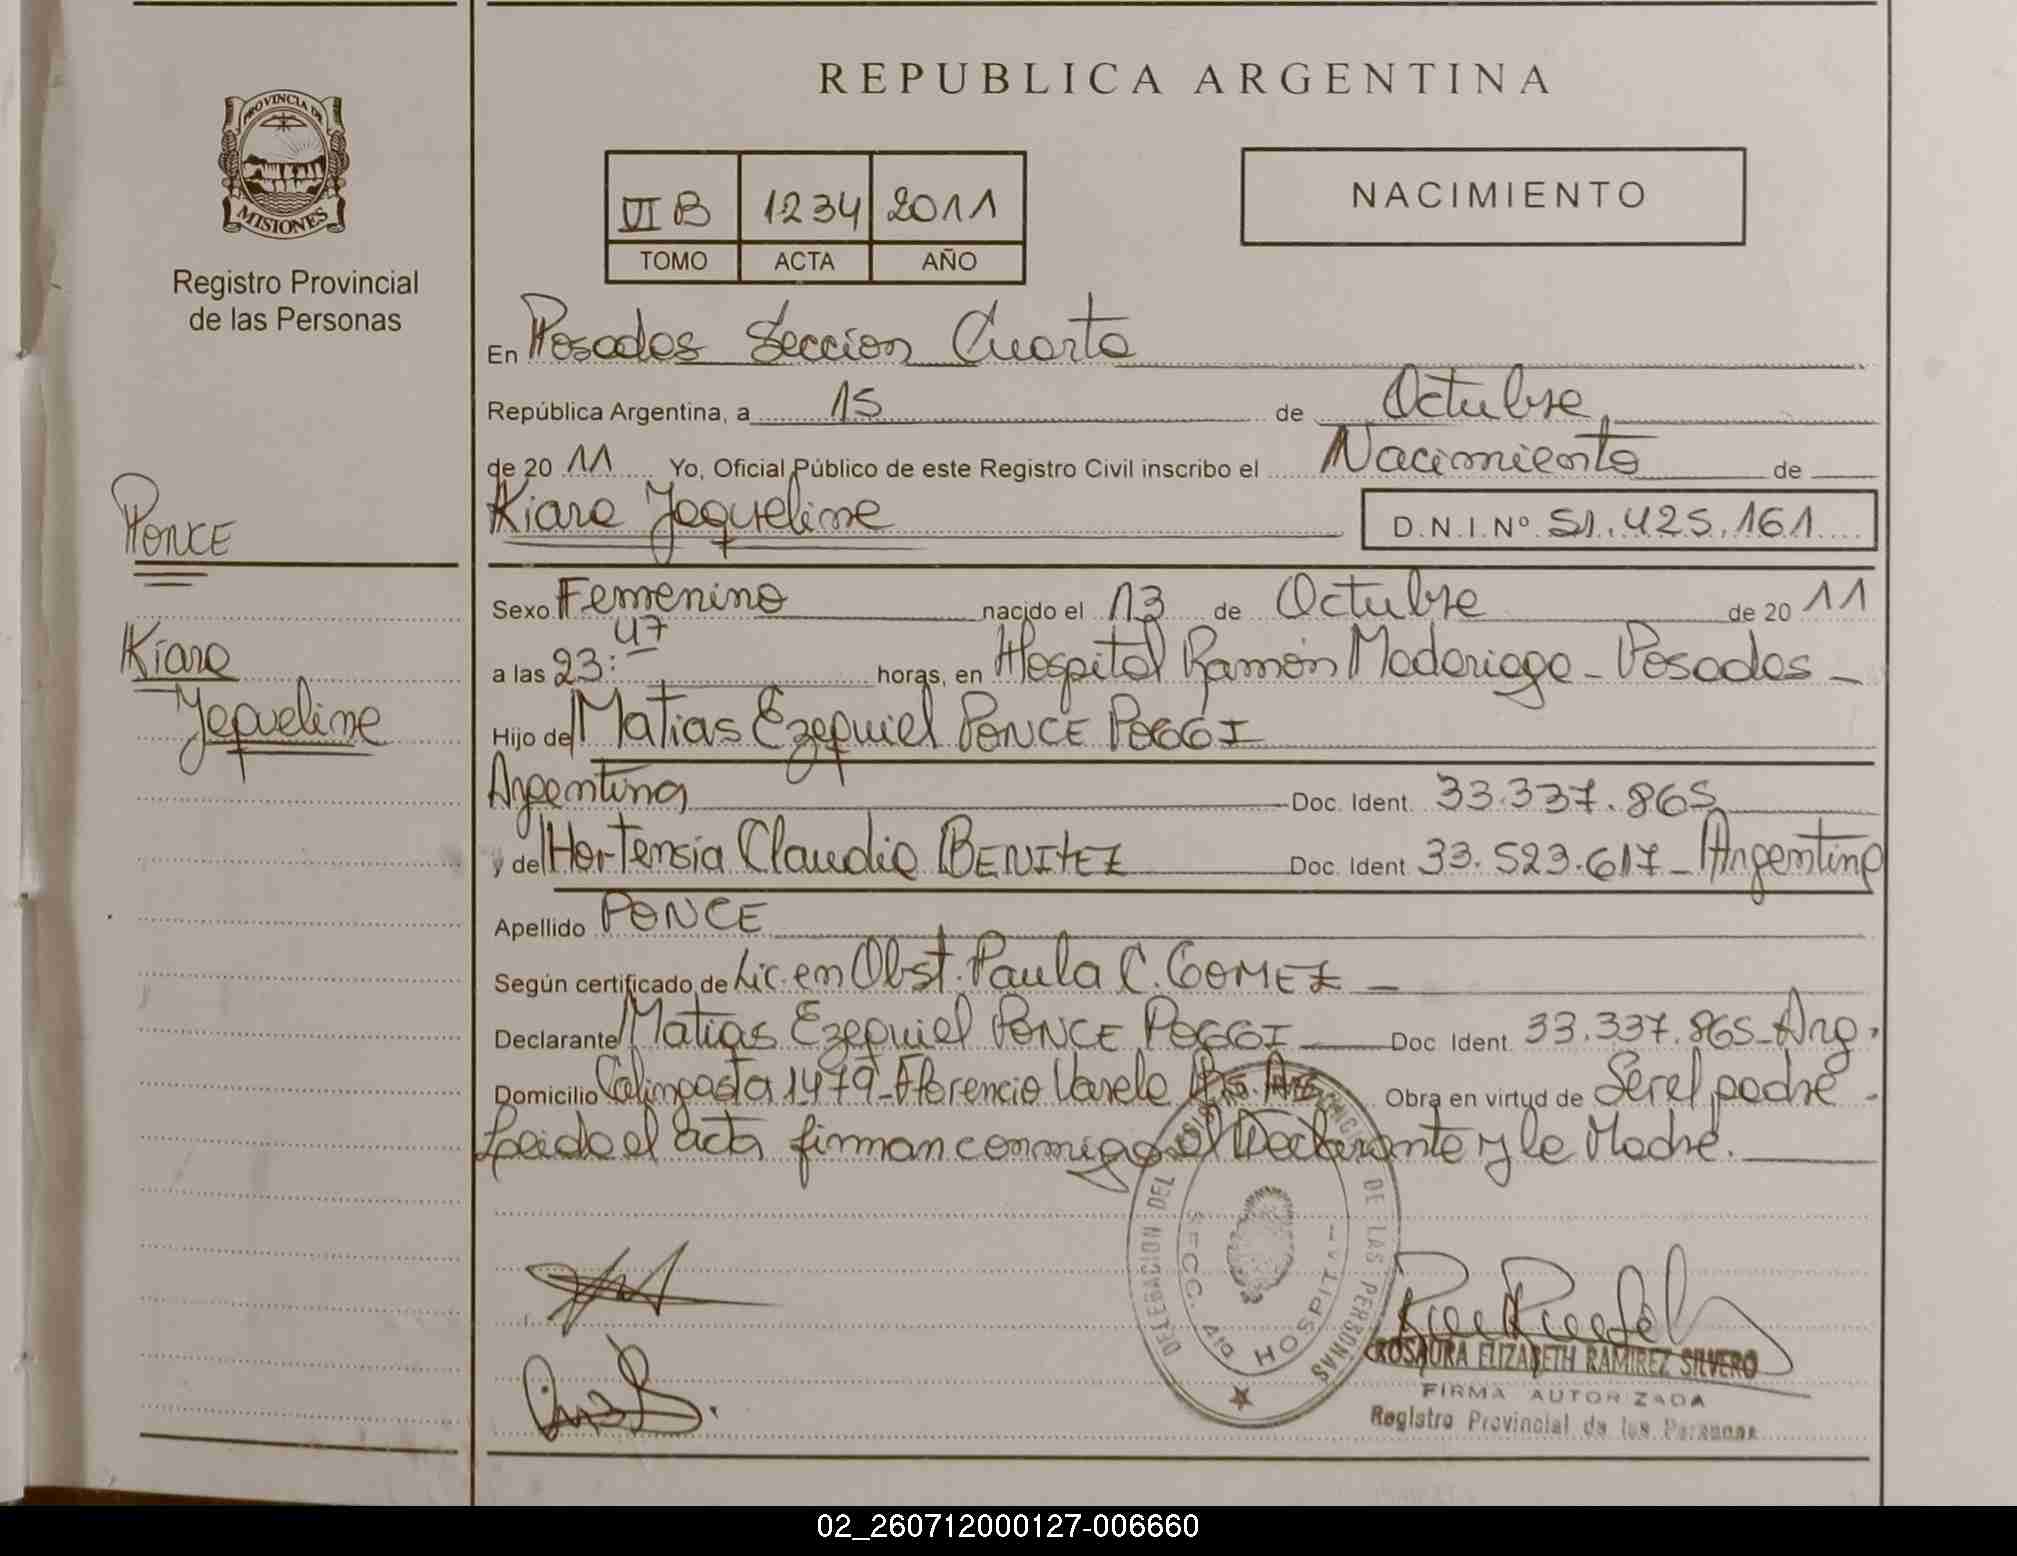 REPUBLICA ARGENTINA
PROVINCIA DE
MISIONES
Registro Provincial
de las Personas
VI B 1234 2011
TOMO ACTA AÑO
NACIMIENTO
En Posadas Seccion Cuarta
República Argentina, a 15 de Octubre
de 20 11 Yo, Oficial Público de este Registro Civil inscribo el Nacimiento de
Kiara Jaqueline D.N.I.Nº 51.425.161
PONCE
Kiara
Jaqueline
Sexo Femenino nacido el 13 de Octubre de 20 11
a las 23:47 horas, en Hospital Ramón Madariaga - Posadas -
Hijo de Matias Ezequiel PONCE POGGI
Argentina Doc. Ident. 33.337.865
y de Hortensia Claudia BENITEZ Doc. Ident 33.523.617 - Argentina
Apellido PONCE
Según certificado de Lic. en Obst. Paula C. GOMEZ -
Declarante Matias Ezequiel PONCE POGGI Doc Ident. 33.337.865 - Arg.
Domicilio Calingasta 1479 - Florencio Varela Bs. As. Obra en virtud de Ser el padre -
Leida el acta firman conmigo el Declarante y la Madre.
DELEGACION DEL DE LAS PERSONAS
SECC. 4ta HOSPITAL
ROSAURA ELIZABETH RAMIREZ SILVERO
FIRMA AUTORIZADA
Registro Provincial de las Personas
02_260712000127-006660